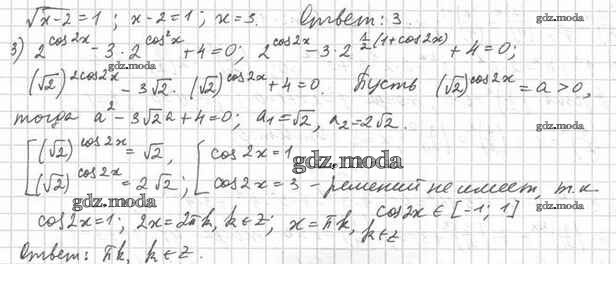 √x-2 = 1 ; x-2=1 ; x=3. Ответ: 3. gdz.moda
3) 2^cos2x - 3·2^cos²x + 4=0; 2^cos2x - 3·2^½(1+cos2x) + 4=0;
gdz.moda gdz.moda
(√2)^2cos2x - 3√2·(√2)^cos2x + 4=0. Пусть (√2)^cos2x = a > 0,
тогда a² - 3√2a + 4=0; a₁=√2, a₂=2√2. gdz.moda
[(√2)^cos2x = √2, [cos2x=1
gdz.moda
(√2)^cos2x = 2√2; cos2x=3 - решений не имеет, т.к
gdz.moda gdz.moda
cos2x=1; 2x=2πk, k∈Z; x=πk, k∈Z cos2x∈[-1; 1]
Ответ: πk, k∈Z. gdz.moda